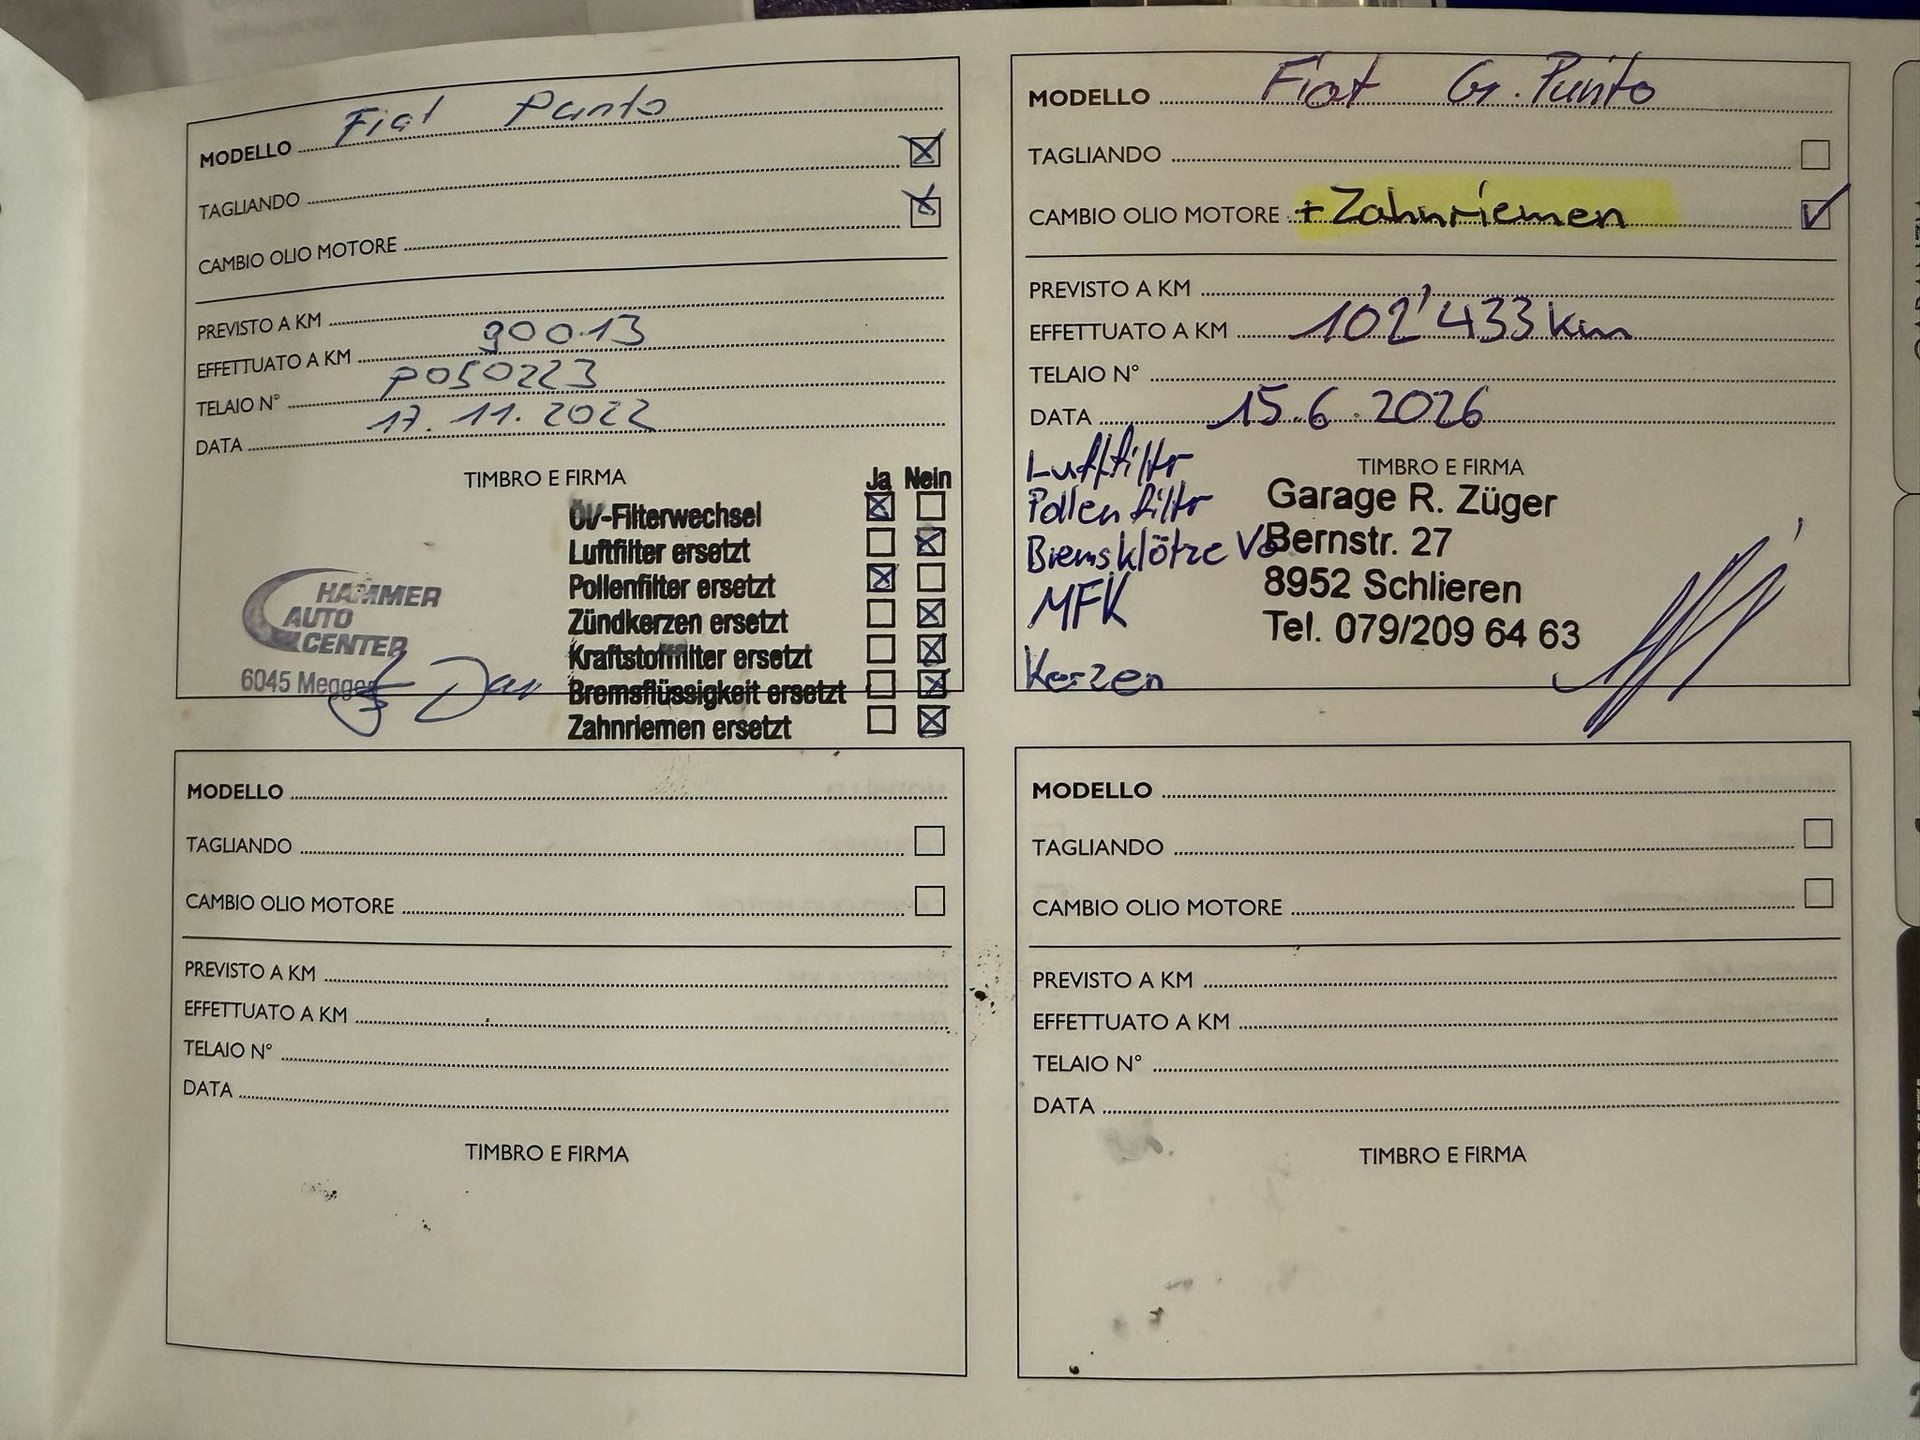 MODELLO Fiat Punto
TAGLIANDO
CAMBIO OLIO MOTORE
PREVISTO A KM
EFFETTUATO A KM 90013
TELAIO N° P050223
DATA 17.11.2022
TIMBRO E FIRMA
Ja Nein
ÖV-Filterwechsel
Luftfilter ersetzt
Pollenfilter ersetzt
Zündkerzen ersetzt
Kraftstofffilter ersetzt
Bremsflüssigkeit ersetzt
Zahnriemen ersetzt
HAMMER
AUTO
CENTER
6045 Meggen
MODELLO Fiat Gr. Punto
TAGLIANDO
CAMBIO OLIO MOTORE + Zahnriemen
PREVISTO A KM
EFFETTUATO A KM 102'433 km
TELAIO N°
DATA 15.6.2026
TIMBRO E FIRMA
Luftfilter
Pollenfilter
Bremsklötze Vo
MFK
Kerzen
Garage R. Züger
Bernstr. 27
8952 Schlieren
Tel. 079/209 64 63
MODELLO
TAGLIANDO
CAMBIO OLIO MOTORE
PREVISTO A KM
EFFETTUATO A KM
TELAIO N°
DATA
TIMBRO E FIRMA
MODELLO
TAGLIANDO
CAMBIO OLIO MOTORE
PREVISTO A KM
EFFETTUATO A KM
TELAIO N°
DATA
TIMBRO E FIRMA